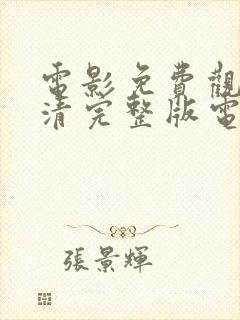 電影免費觀
清完整版電
張景輝